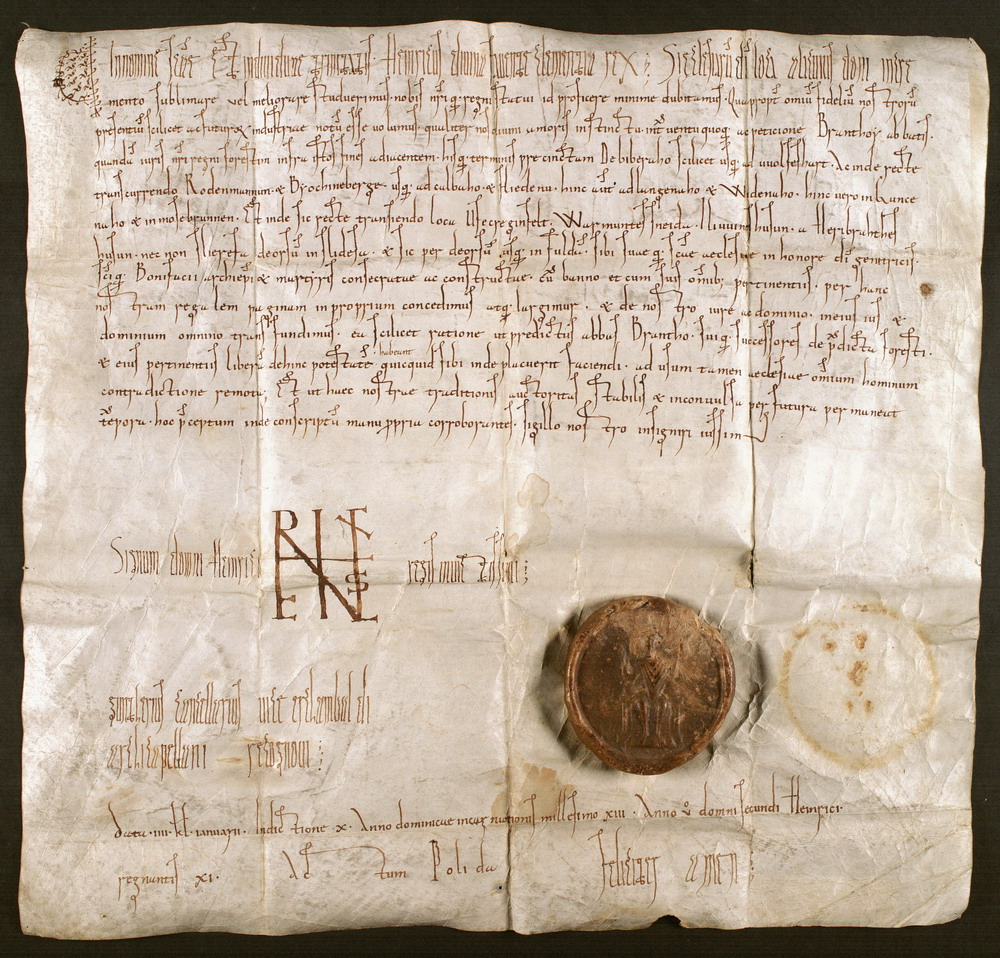 In nomine sc̄ae et individuae trinitatis. Heinricus divina favente clementia rex. Si ecclesiarum di loca alicuius doni incre
mento sublimare vel meliorare studuerimus nobis nrīq; regni statui id proficere minime dubitamus. Quapropt̄ omniū fidelium nostrorū
presentiū scilicet ac futurorū industriae notū esse volumus qualiter nos divini amoris instinctu int̄ventuquoq; ac peticione Branthoy abbatis.
quandā iuris nrī regni forestim infra istos fines adiacentem. hisq; terminis precinctam De biberaho scilicet usq; ad vuolfeshart. Ac inde recte
transcurrendo Rodenmannun. & Byochineberge. usq; ad culbaho. & fliedena. hinc aut̄ ad lungenaho & Widenaho. hinc vero in hance
naho & in mosebrunnen. Et inde sic recte transiendo loca Usecreginfelt. Warmuntessneida. Nivuinhusun. a Heribrahtes
husun. nec non slierefa deorsū in slidesa. & sic per deorsū usq; in fulda. sibi suaeq; scae aecclesiae in honore dī gentricis.
sciq; Bonifacii archiepi & martyris consecratae ac constructae. cū banno et cum suis omnib; pertinentiis. per hanc
nostram regalem paginam in proprium concedimus atq; largimur. & de nostro iure ac dominio. in eius ius &
dominium omnino transfundimus. ea scilicet ratione ut predictus abbas Brantho. suiq; successores de p̄dicta foresti.
& eius pertinentiis liberā dehinc potestatē habeant quicquid sibi inde placuerit faciendi. ad usum tamen aecclesiae omnium hominum
contradictione remota. Et ut haec nostrae traditionis auctoritas stabilis & inconvulsa per futura permaneat
tēpora. hoc p̄ceptum inde conscriptū manu ppria corroborantes. sigillo nostro insigniri iussim
Signum domni Heinrici regis invictissimi
guntherius cancellarius vice erchambaldi
archicapellani recognovi
data. IIII. kl. ianuarii. Indictione X. Anno dominicae incarnationis millesimo XIII. Anno v̄ domni secundi Heinrici.
regnantis XI. Actum Polida Feliciter amen